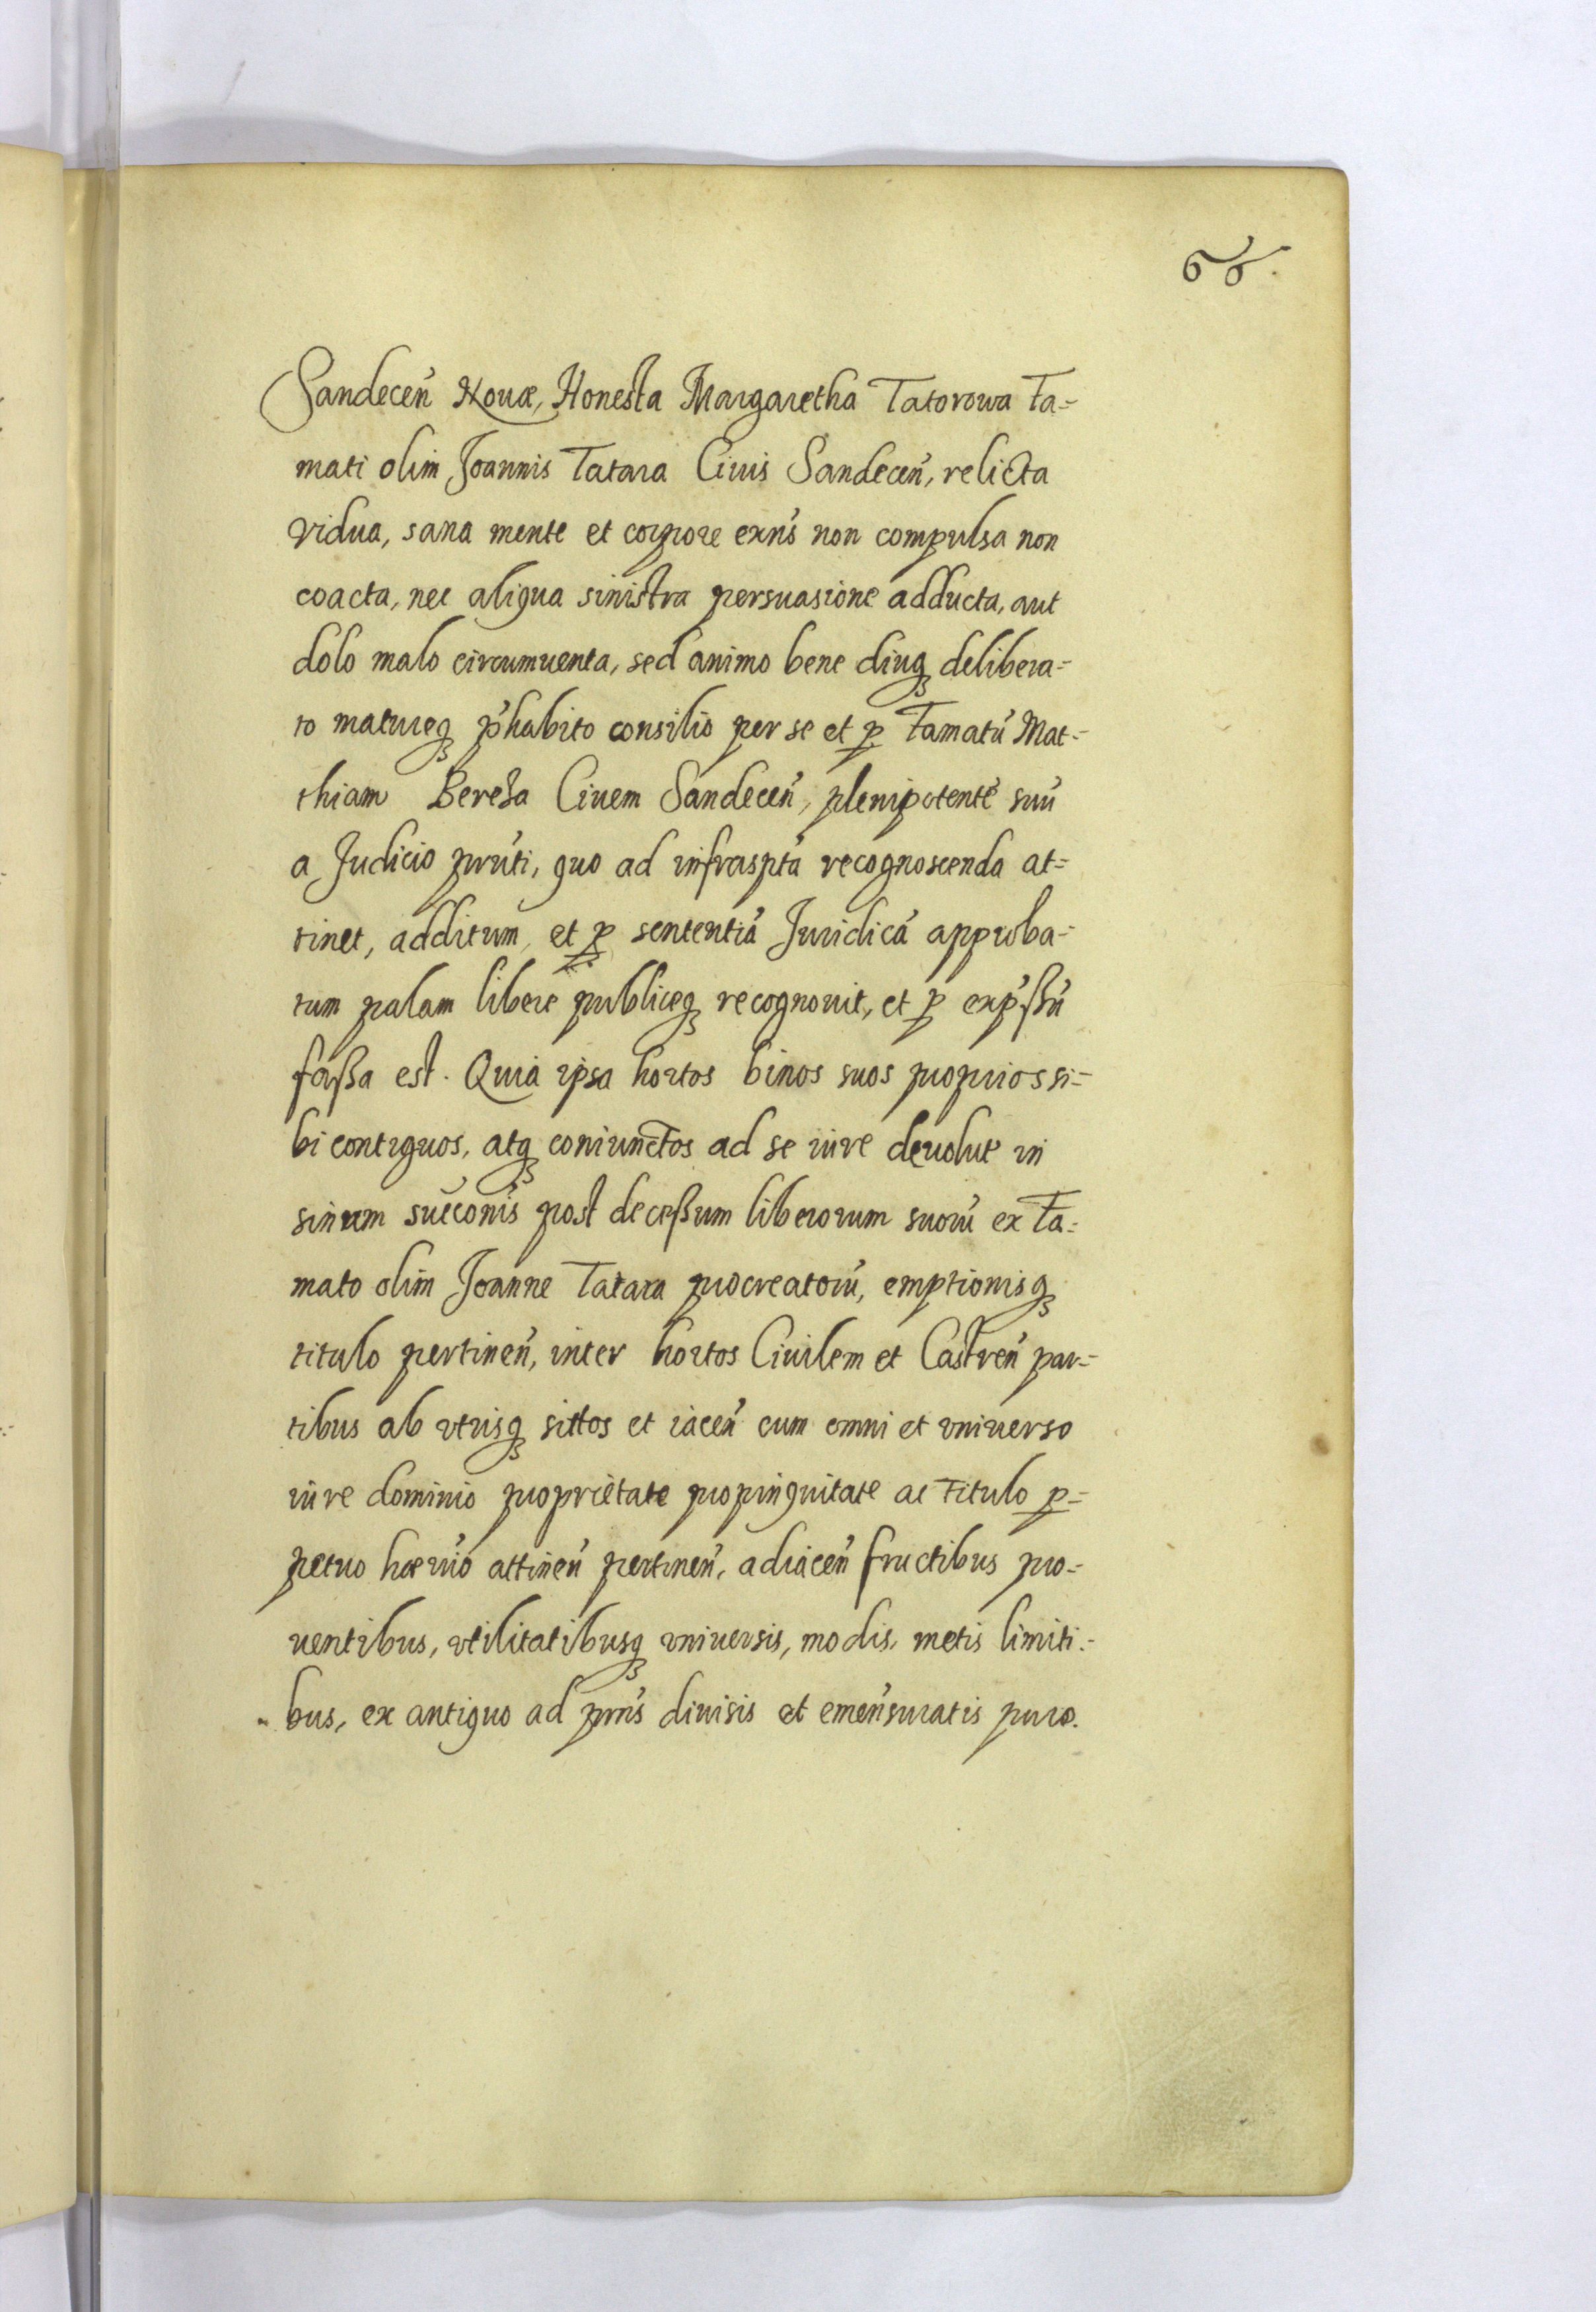 66.
Sandeceń Nouæ, Honesta Margaretha Tatorowa Fa-
mati olim Joannis Tatara Ciuis Sandeceń, relicta
vidua, sana mente et corpore exńs non compulsa non
coacta, nec aliqua sinistra persuasione adducta, aut
dolo malo circumuenta, sed animo bene diuqꝫ delibera-
to matureqꝫ p̃habito consilio per se et ꝑ Famatū Mat-
thiam Bereẞa Ciuem Sandeceń, plenipotentē suū
a Judicio pr̃nti, quo ad infrasp̃ta recognoscenda at-
tinet, additum, et ꝑ sententiā Juridicā approba-
tum palam libere publiceqꝫ recognouit, et ꝑ exp̃ßū
faßa est. Quia ipsa hortos binos suos proprios si-
bi contiguos, atqꝫ coniunctos ad se iure deuolut̃ in
sinum suc̃conis post deceßum liberorum suorū ex Fa-
mato olim Joanne Tatara procreatorū, emptionisqꝫ
titulo pertineń, inter hortos Ciuilem et Castreń par-
tibus ab vtrisqꝫ sittos et iaceń cum omni et vniuerso
iure dominio proprietate propinquitate ac titulo ꝑ-
petuo hær̃rio attineń pertineń, adiaceń fructibus pro-
uentibus, vtilitatibusqꝫ vniuersis, modis, metis limiti-
bus, ex antiquo ad pr̃ns diuisis et emeńsuratis puro.